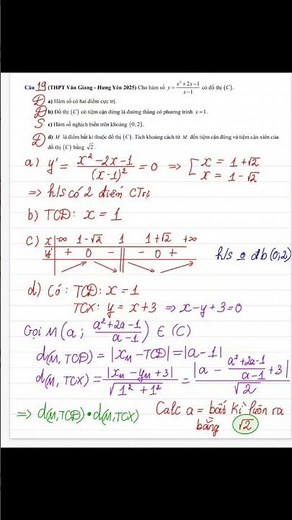 Câu 19 (THPT Văn Giang - Hưng Yên 2025) Cho hàm số y = (x² + 2x - 1)/(x - 1) có đồ thị (C).
Đ a) Hàm số có hai điểm cực trị.
Đ b) Đồ thị (C) có tiệm cận đứng là đường thẳng có phương trình x = 1.
S c) Hàm số nghịch biến trên khoảng (0;2).
Đ d) M là điểm bất kì thuộc đồ thị (C). Tích khoảng cách từ M đến tiệm cận đứng và tiệm cận xiên của
đồ thị (C) bằng √2.
a) y' = (x² - 2x - 1)/(x - 1)² = 0 => [ x = 1 + √2
x = 1 - √2
=> h/s có 2 điểm CTrị
b) TCĐ: x = 1
c) x -∞ 1-√2 1 1+√2 +∞
y' + 0 - || - 0 +
h/s o đb (0;2)
d) Có: TCĐ: x = 1
TCX: y = x + 3 => x - y + 3 = 0
Gọi M(a; (a² + 2a - 1)/(a - 1)) ∈ (C)
d(M, TCĐ) = |x_M - TCĐ| = |a - 1|
d(M, TCX) = |x_M - y_M + 3|/√(1² + 1²) = |a - (a² + 2a - 1)/(a - 1) + 3|/√2
=> d(M, TCĐ) • d(M, TCX) Calc a = bất kì luôn ra
bằng √2